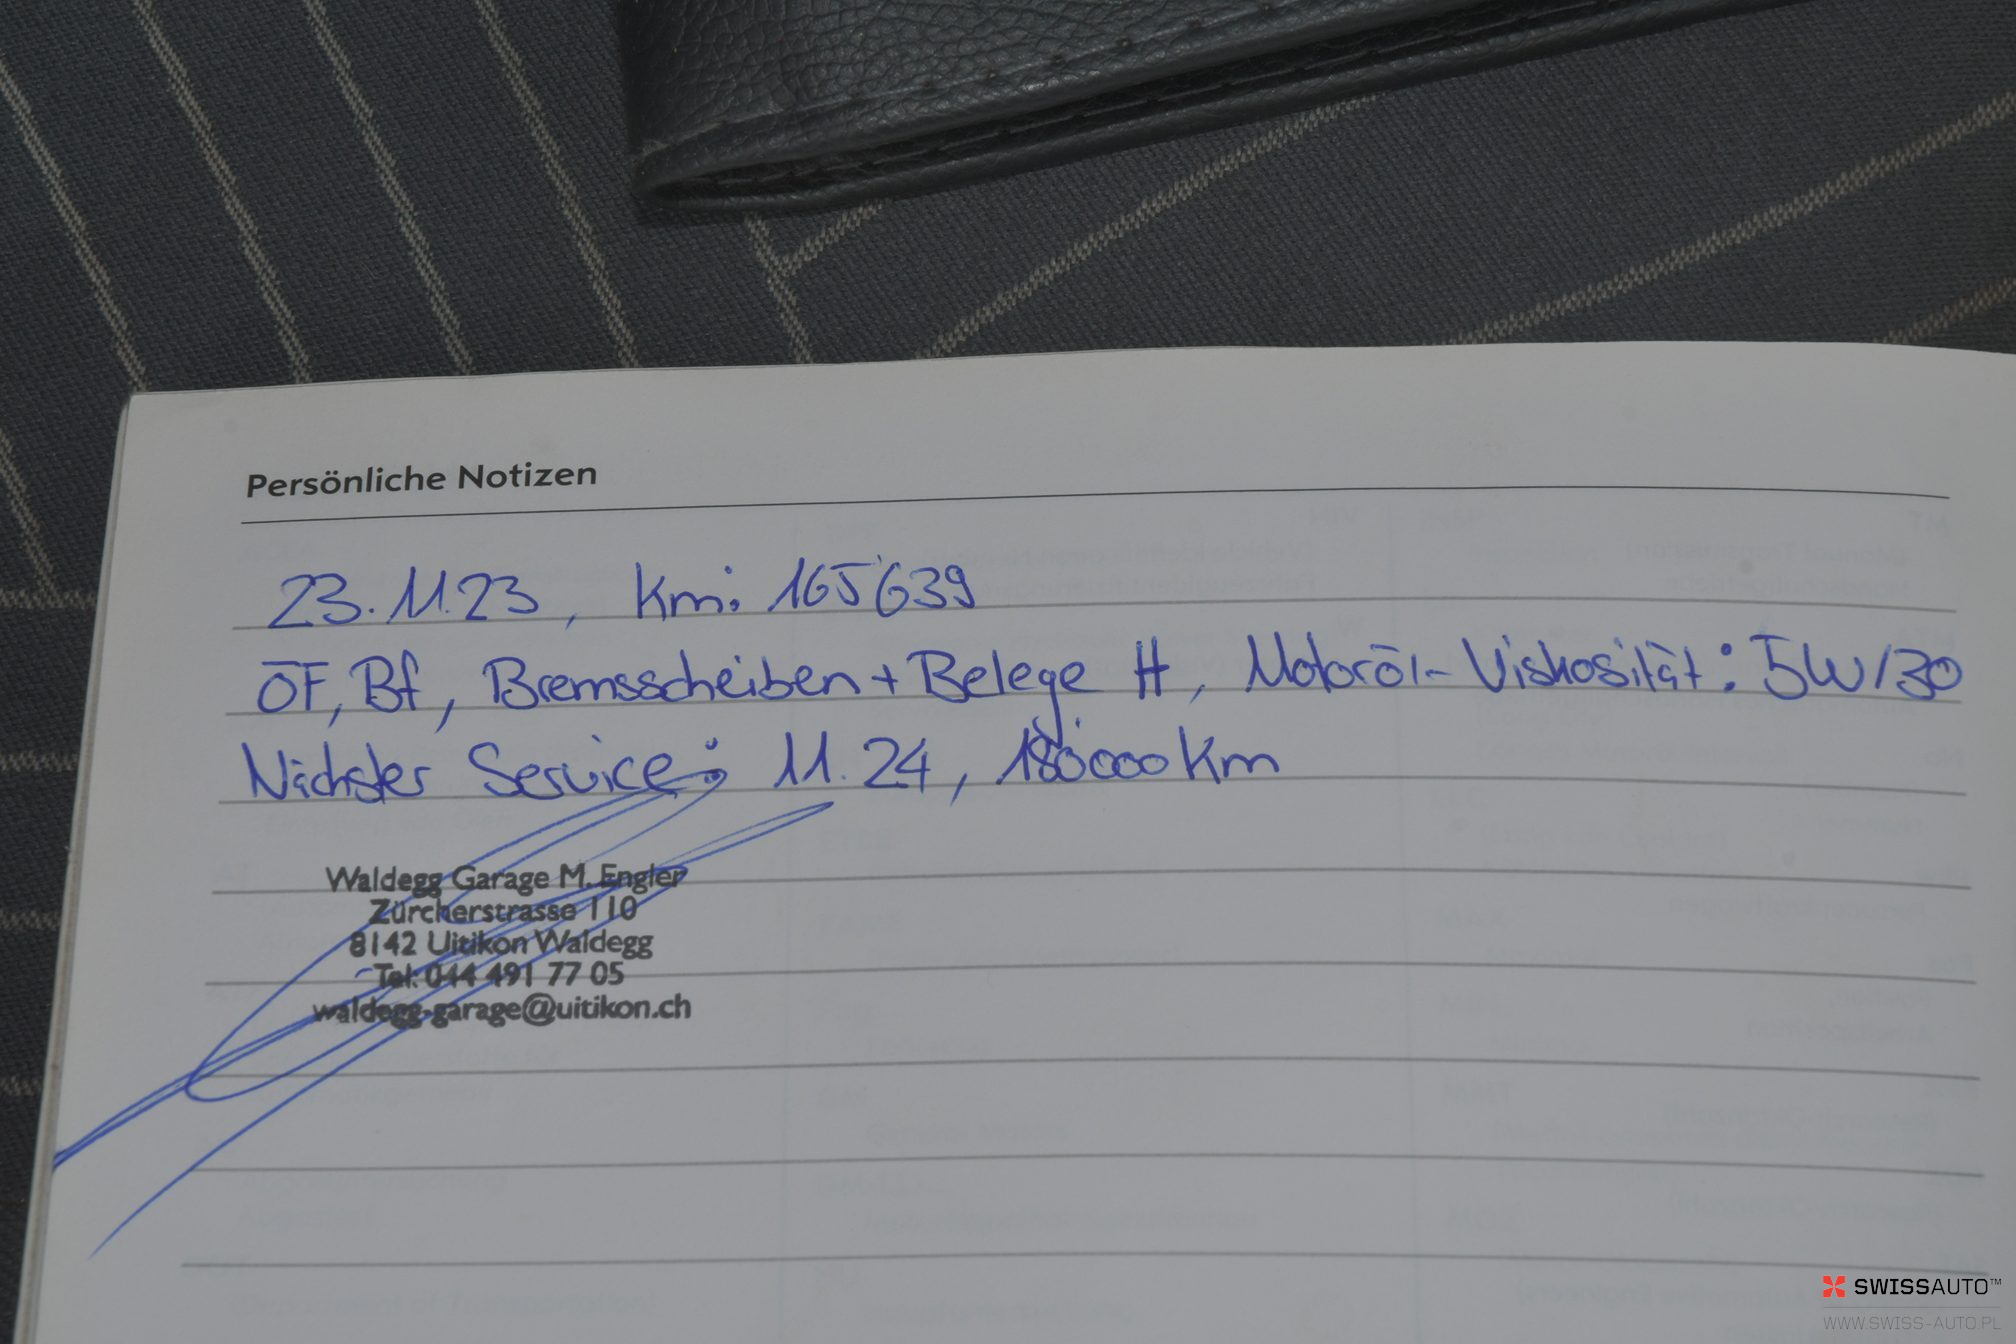 Persönliche Notizen
23.11.23, Km: 165'639
ÖF, Bf, Bremsscheiben + Belege H, Motoröl-Viskosität: 5W/30
Nächster Service: 11.24, 180'000 Km
Waldegg Garage M. Engler
Zürcherstrasse 110
8142 Uitikon Waldegg
Tel. 044 491 77 05
waldegg-garage@uitikon.ch
SWISSAUTO™
WWW.SWISS-AUTO.PL